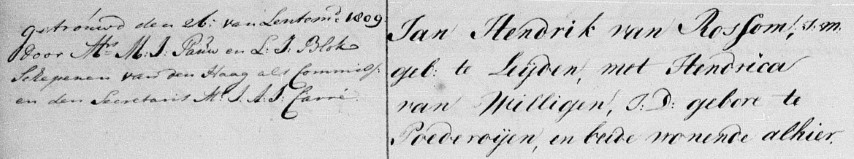 getrouwd den 26: van Lentem: 1809
door Mrs M. J. Pauw en L. J. Blok
Schepenen van den Haag als Commiss:
en den Secretaris Mr J. A. J. Carré.
Jan Hendrik van Rossom, J.m.
geb: te Leijden, met Hendrica
van Willigen, J:D: gebore te
Poederoijen, en beide wonende alhier.